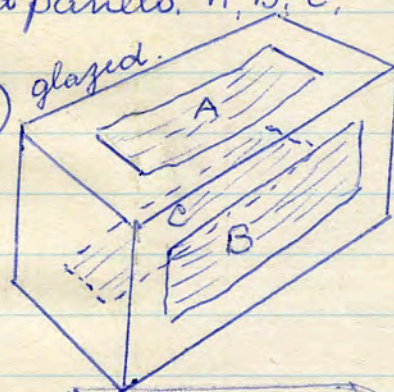 panels. A, B, C,
glazed.
A
C
B